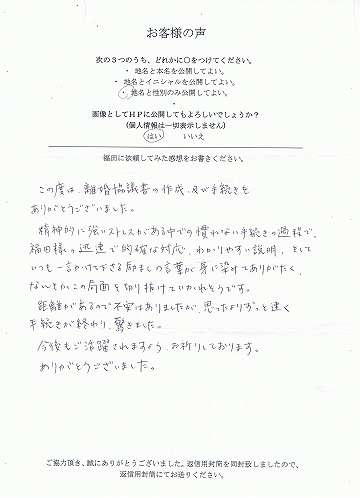 お客様の声
次の３つのうち、どれかに〇をつけてください。
・地名と本名を公開してよい。
・地名とイニシャルを公開してよい。
・地名と性別のみ公開してよい。
画像としてＨＰに公開してもよろしいでしょうか？
（個人情報は一切表示しません）
はい　　いいえ
福田に依頼してみた感想をお書きください。
この度は、離婚協議書の作成、及び手続きを
ありがとうございました。
精神的に強いストレスがある中での慣れない手続きの過程で、
福田様の迅速で的確な対応、わかりやすい説明、そして
いつも一言かけて下さる励ましの言葉が身に染みてありがたく、
なんとかこの局面を切り抜けていかれそうです。
距離があるので不安はありましたが、思ったよりずっと速く
手続きが終わり、驚きました。
今後もご活躍されますよう、お祈りしております。
ありがとうございました。
ご協力頂き、誠にありがとうございました。返信用封筒を同封致しましたので、
返信用封筒にてお送りください。